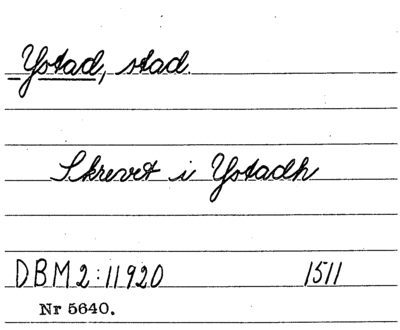 Ystad, stad.
Skrevet i Ystadh
DBM 2:11920 1511
Nr 5640.